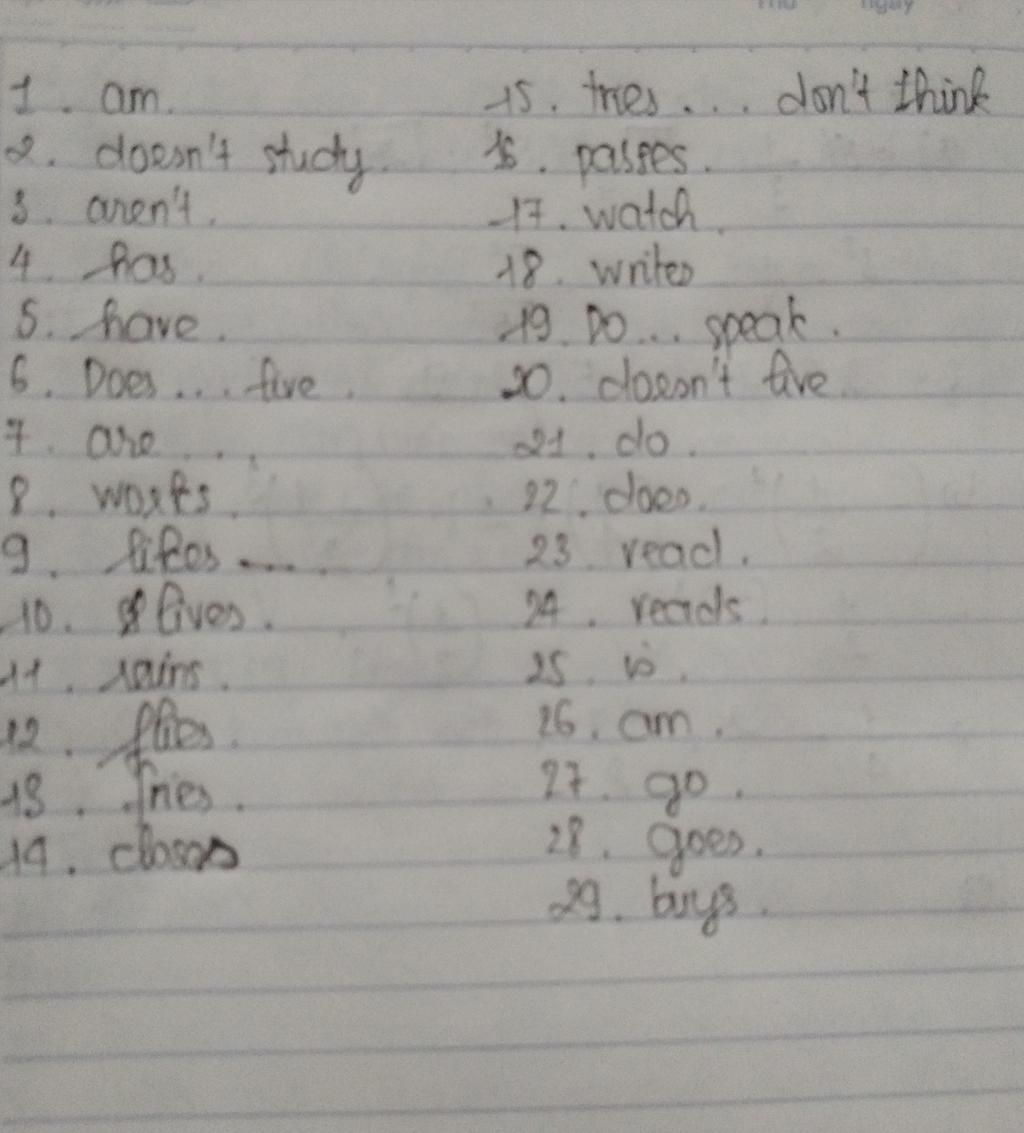 Thứ
ngày
1. am.
2. doesn't study.
3. aren't.
4. has.
5. have.
6. Does... live.
7. are....
8. works.
9. likes.....
10. lives.
11. rains.
12. flies.
13. fries.
14. closes
15. tries... don't think
16. passes.
17. watch.
18. writes
19. Do... speak.
20. doesn't live.
21. do.
22. does.
23. read.
24. reads.
25. is.
26. am.
27. go.
28. goes.
29. buys.